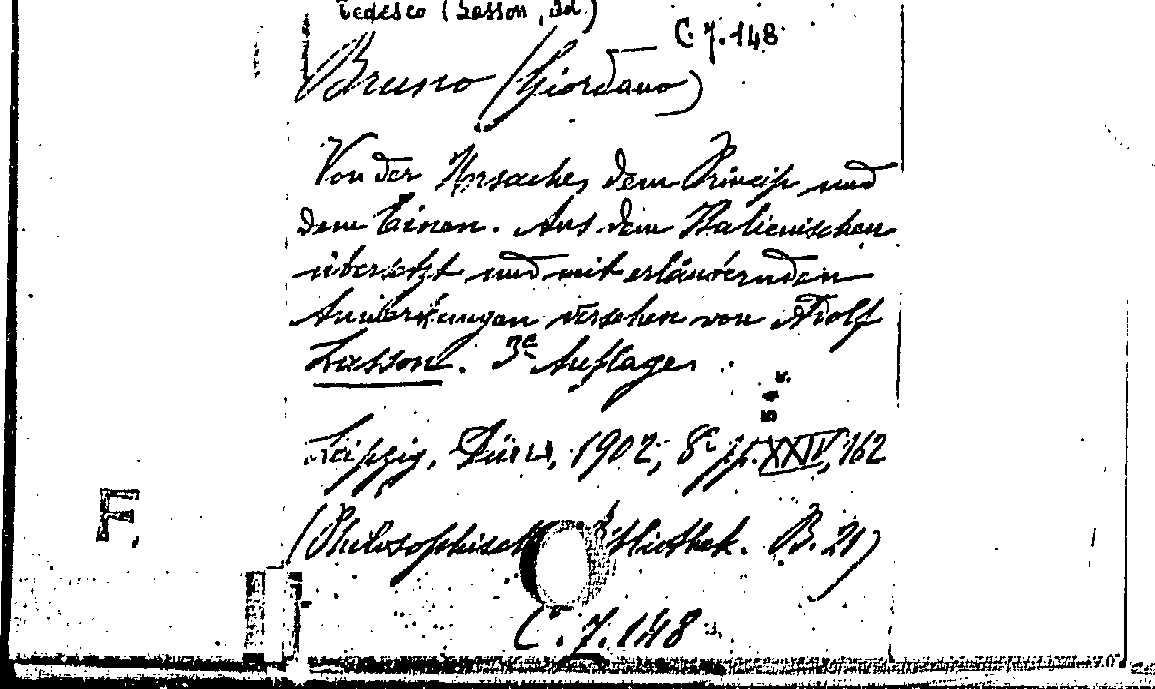 Tedesco (Lasson, Ad.)
C.7.148
Bruno (Giordano)
Von der Ursache, dem Princip und
dem Einen. Aus dem Italienischen
übersetzt und mit erläuternden
Anmerkungen versehen von Adolf
Lasson. 3e Auflage.
Leipzig, Dürr, 1902, 8° pp. XXIV, 162
(Philosophische Bibliothek. B. 21)
F.
C.7.148